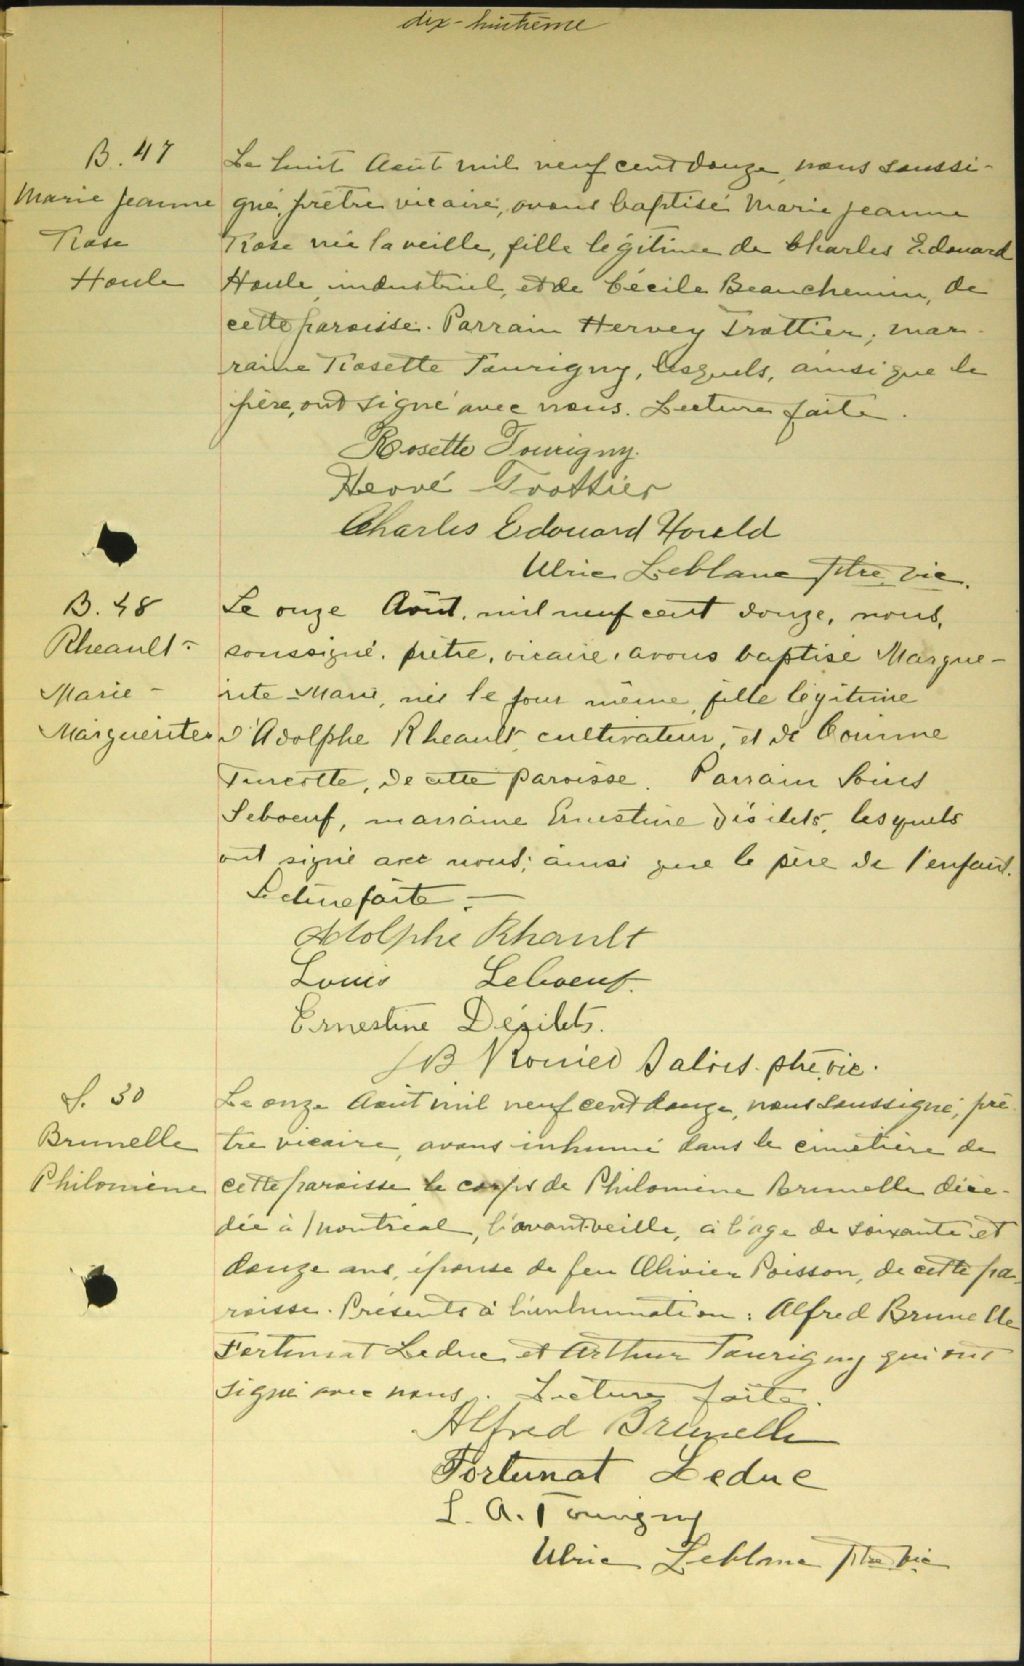 dix-huitième
B. 47
Marie Jeanne
Rose
Houle
Le huit Août mil neuf cent douze, nous soussi-
gné, prêtre vicaire, avons baptisé Marie Jeanne
Rose née la veille, fille légitime de Charles Edouard
Houle, industriel, et de Cécile Beauchemin, de
cette paroisse. Parrain Hervey Trottier, mar-
raine Rosette Tourigny, lesquels, ainsi que le
père, ont signé avec nous. Lecture faite.
Rosette Tourigny.
Hervé Trottier
Charles Edouard Hould
Ulric Leblanc ptre vic.
B. 48
Rheault-
Marie-
Marguerite
Le onze Août, mil neuf cent douze, nous,
soussigné, prêtre, vicaire, avons baptisé Margue-
rite-Marie, née le jour même, fille légitime
d'Adolphe Rheault, cultivateur, et de Corinne
Turcotte, de cette paroisse. Parrain Louis
Leboeuf, marraine Ernestine Désilets, lesquels
ont signé avec nous, ainsi que le père de l'enfant.
Lecture faite.-
Adolphe Rhault
Louis Leboeuf.
Ernestine Désilets.
JB Salois. ptre, vic.
S. 30
Brunelle
Philomène
Le onze Août mil neuf cent douze, nous soussigné, prê-
tre vicaire, avons inhumé dans le cimetière de
cette paroisse le corps de Philomène Brunelle décé-
dée à Montréal, l'avant-veille, à l'âge de soixante et
douze ans, épouse de feu Olivier Poisson, de cette pa-
roisse. Présents à l'inhumation: Alfred Brunelle
Fortunat Leduc et Arthur Tourigny qui ont
signé avec nous. Lecture faite.
Alfred Brunelle
Fortunat Leduc
L. A. Tourigny
Ulric Leblanc ptre vic